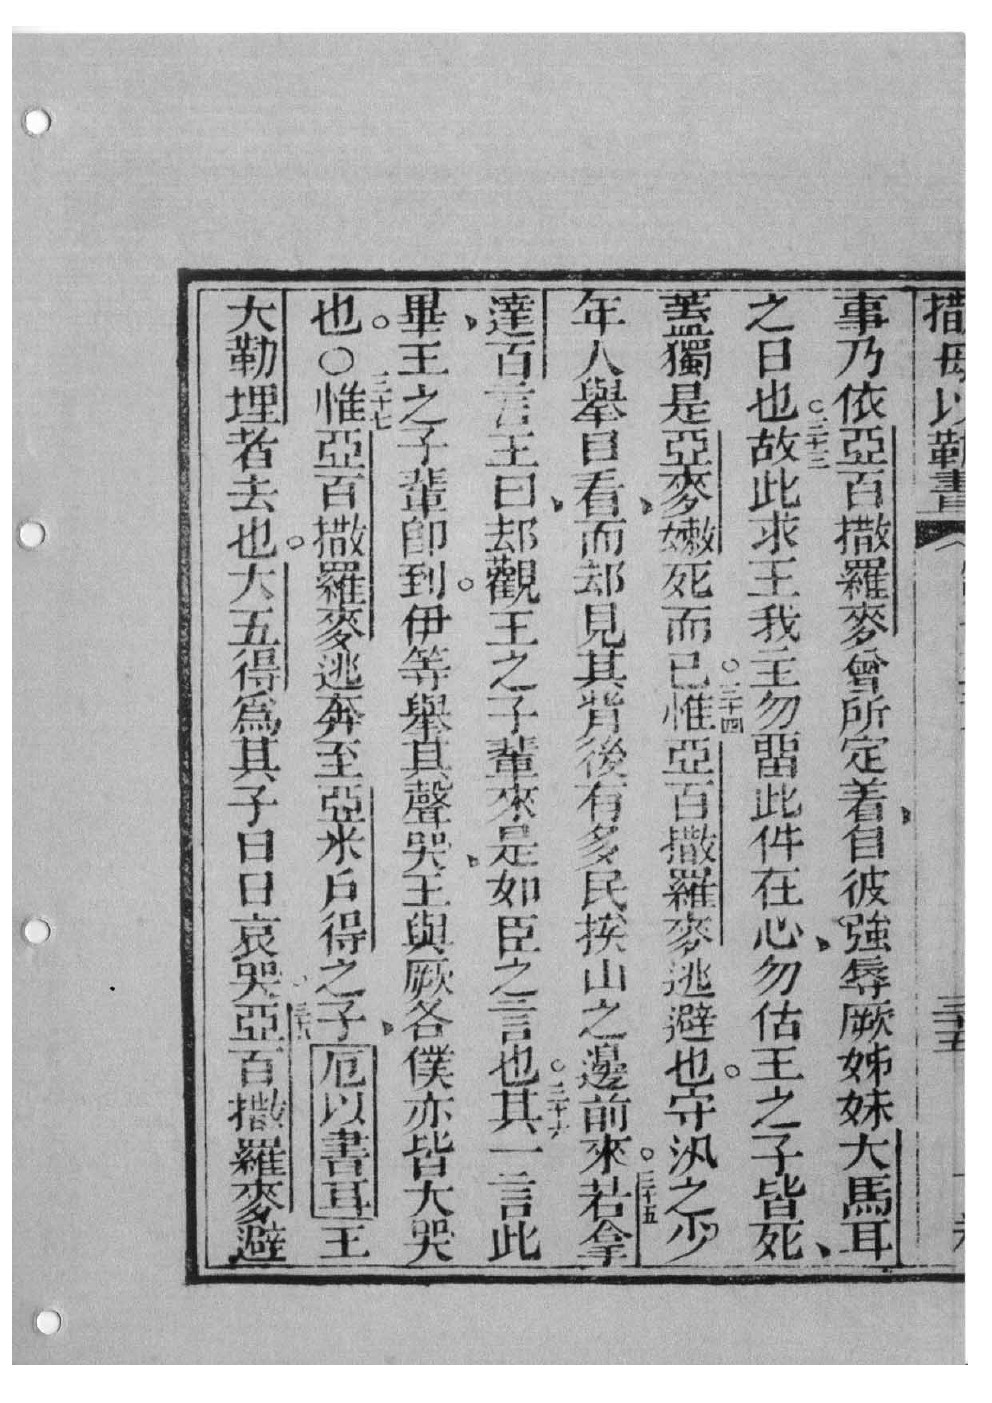 撒母以勒書
事乃依亞百撒羅麥曾所定着自彼強辱厥姊妹大馬耳
之日也。三十三故此求王我主勿畱此件在心勿估王之子皆死、
蓋獨是亞麥嫩死而已。三十四惟亞百撒羅麥逃避也。守汛之少
年人舉目看、而却見其背後有多民挨山之邊前來。三十五若拿
達百言王曰、却觀王之子輩來是如臣之言也。三十六其一言此
畢、王之子輩卽到。伊等舉其聲哭、王與厥各僕亦皆大哭
也。〇三十七惟亞百撒羅麥逃奔至亞米戶得之子、厄以書耳王
大勒埋者去也。大五得爲其子日日哀哭。亞百撒羅麥避